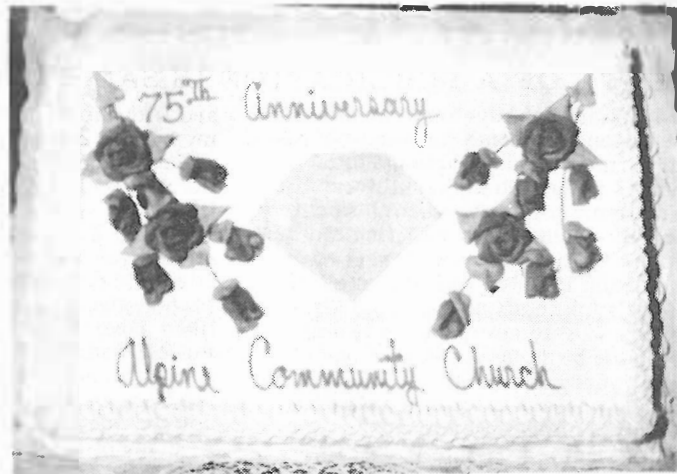 75th Anniversary
Alpine Community Church